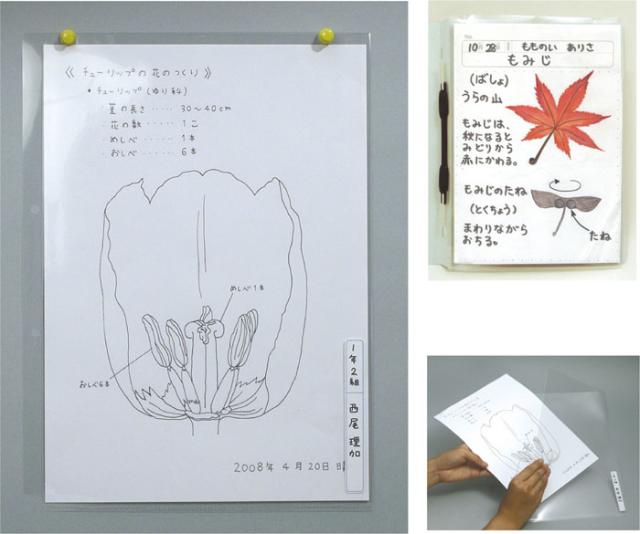 《 チューリップの花のつくり 》
• チューリップ(ゆり科)
茎の長さ ····· 30〜40cm
花の数 ····· 1こ
めしべ ····· 1本
おしべ ····· 6本
めしべ1本
おしべ6本
1年2組 西尾 理加
2008年 4月20日 日
10月 28日 もものい ありさ
もみじ
(ばしょ)
うらの山
もみじは、
秋になると
みどりから
赤にかわる。
もみじのたね
(とくちょう)
まわりながら
おちる。
たね